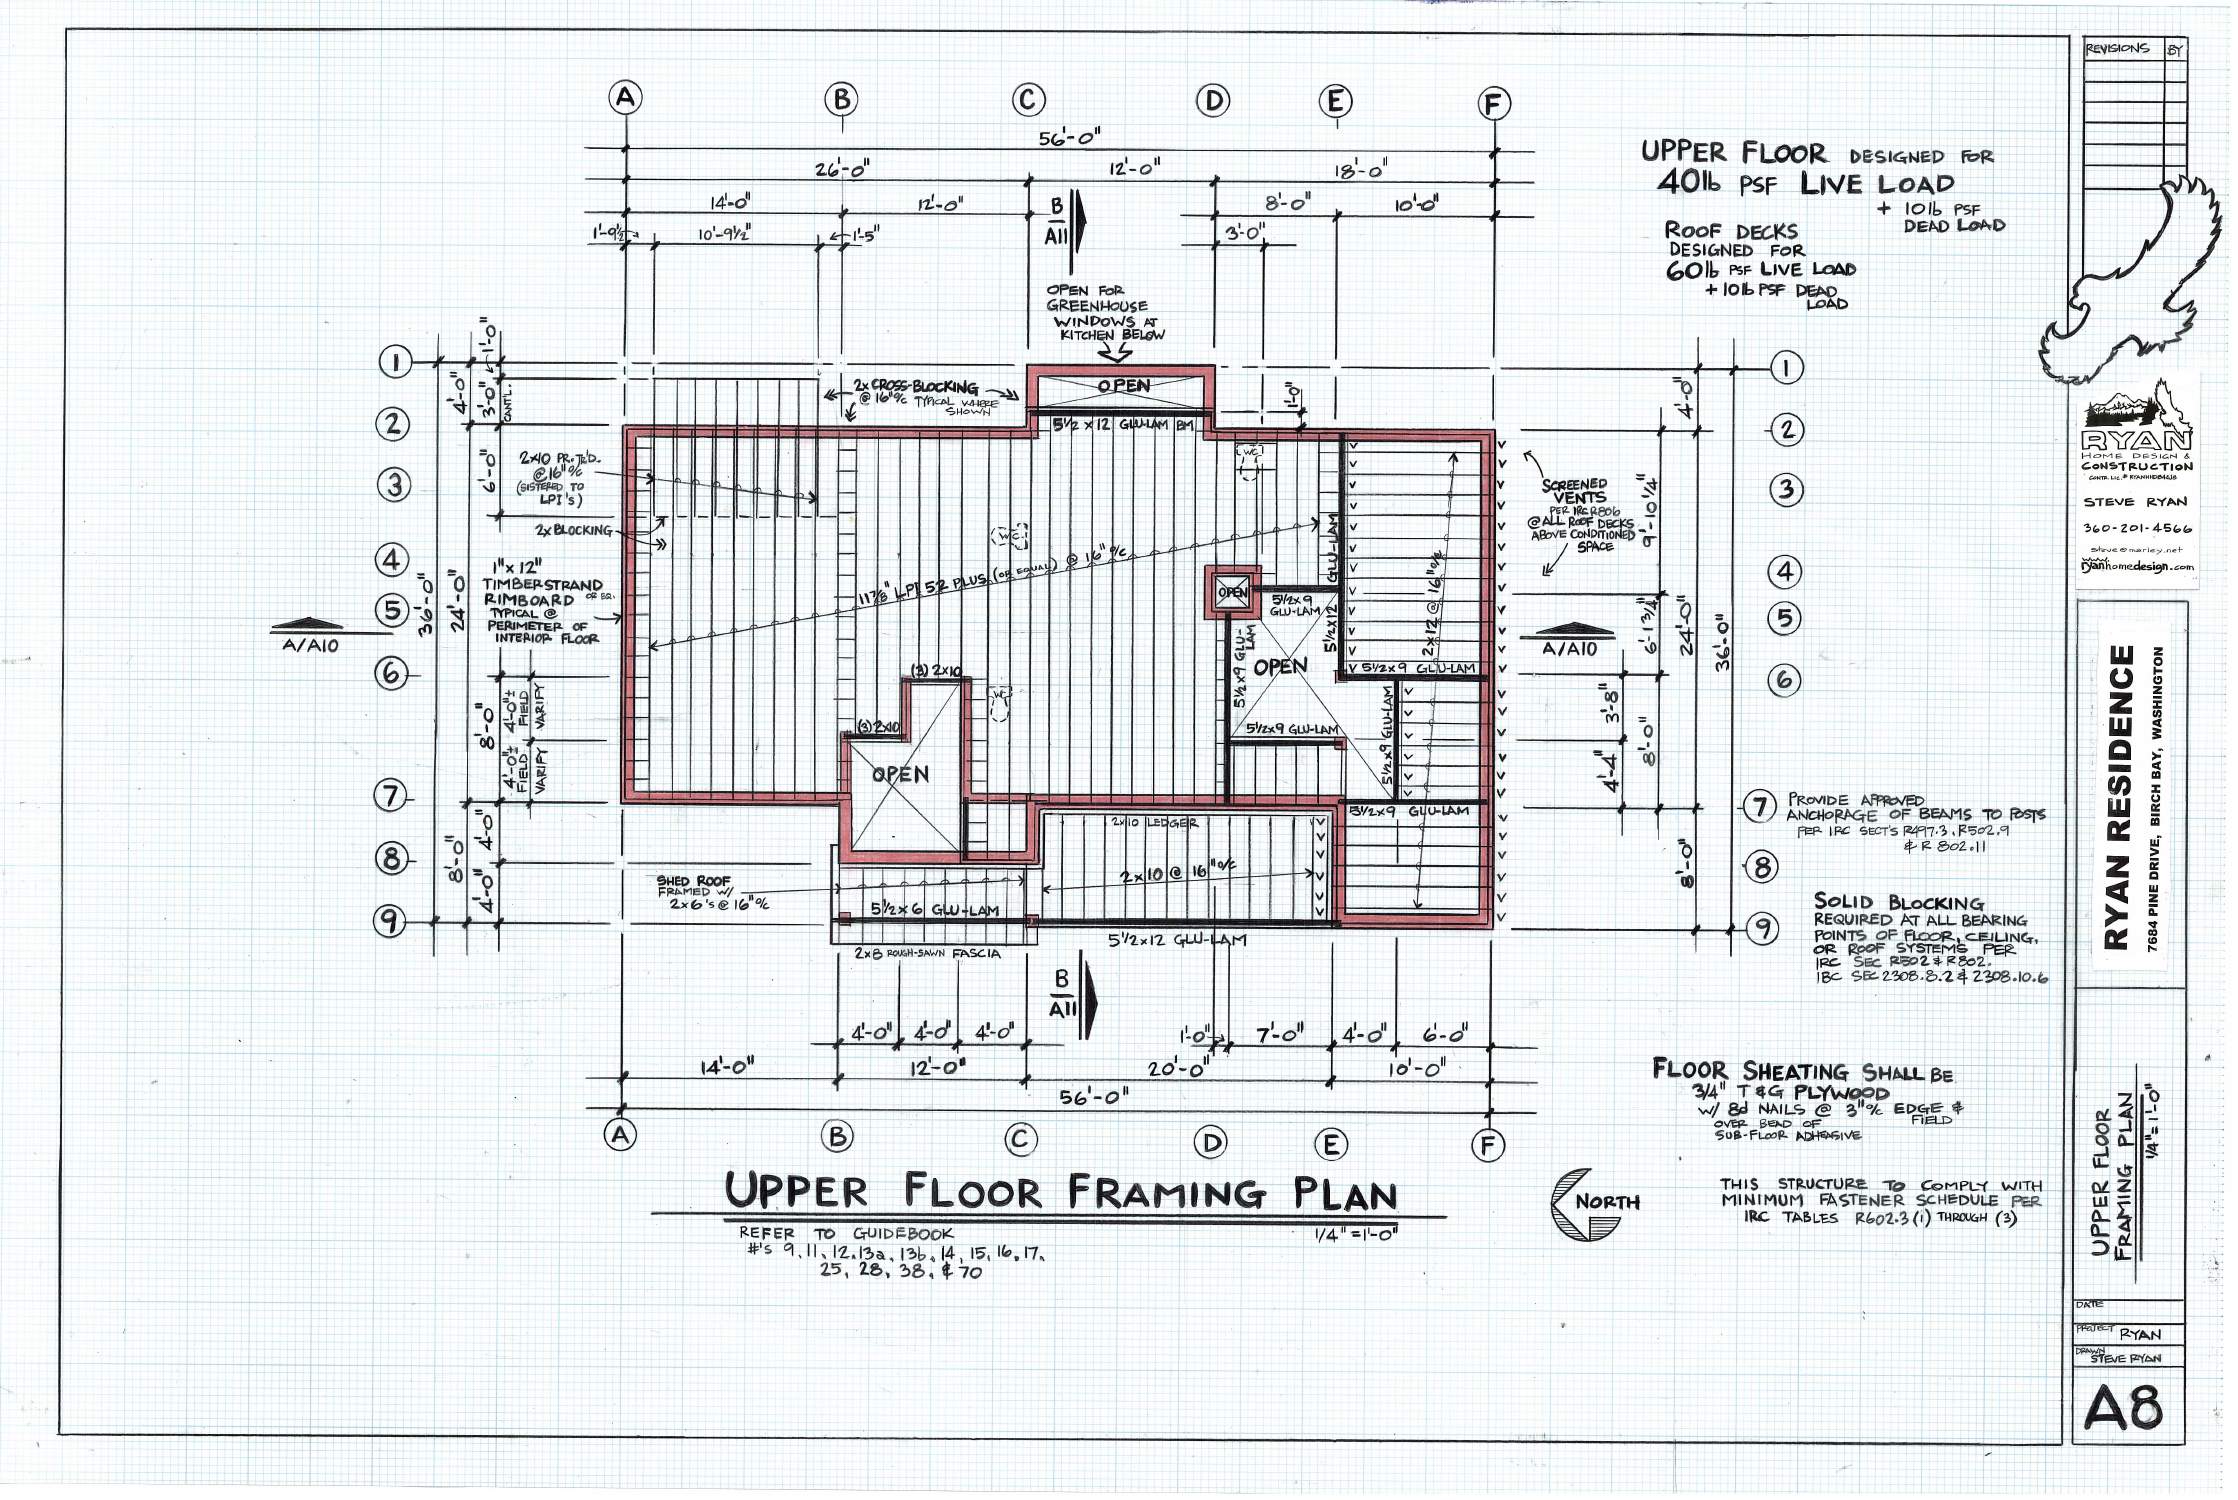 REVISIONS BY
A B C D E F
56'-0"
26'-0" 12'-0" 18'-0"
14'-0" 12'-0" 8'-0" 10'-0"
1'-9½" 10'-9½" 1'-5" 3'-0"
B
A11
OPEN FOR
GREENHOUSE
WINDOWS AT
KITCHEN BELOW
UPPER FLOOR DESIGNED FOR
40lb PSF LIVE LOAD
+ 10lb PSF
DEAD LOAD
ROOF DECKS
DESIGNED FOR
60lb PSF LIVE LOAD
+ 10lb PSF DEAD
LOAD
1
2
3
4
5
6
7
8
9
36'-0"
4'-0"
24'-0"
8'-0"
1'-0"
3'-0"
CANT'L.
6'-0"
8'-0"
4'-0"±
FIELD
VARIFY
4'-0"±
FIELD
VARIFY
4'-0"
4'-0"
2x CROSS-BLOCKING
@ 16"o/c TYPICAL WHERE
SHOWN
OPEN
5½ x 12 GLU-LAM BM
1'-0"
2x10 PR.TR'D.
@ 16"o/c
(SISTERED TO
LPI'S)
2x BLOCKING
1"x 12"
TIMBERSTRAND
RIMBOARD OR EQ.
TYPICAL @
PERIMETER OF
INTERIOR FLOOR
A/A10
11⅞" LPI 52 PLUS (OR EQUAL) @ 16"o/c
WC
WC
WC
OPEN
5½x9
GLU-LAM
GLU-LAM
5½x12
5½x9 GLU-
LAM
OPEN
2x12 @ 16"o/c
5½x9 GLU-LAM
5½x9 GLU-LAM
5½x9 GLU-LAM
5½x9 GLU-LAM
(3) 2x10
(3) 2x10
OPEN
2x10 LEDGER
2x10 @ 16"o/c
SHED ROOF
FRAMED W/
2x6's @ 16"o/c
5½x6 GLU-LAM
2x8 ROUGH-SAWN FASCIA
5½x12 GLU-LAM
SCREENED
VENTS
PER IRC R806
@ ALL ROOF DECKS
ABOVE CONDITIONED
SPACE
A/A10
1
2
3
4
5
6
4'-0"
9'-10¼"
6'-1¾"
24'-0"
36'-0"
3'-8"
8'-0"
4'-4"
8'-0"
7 PROVIDE APPROVED
ANCHORAGE OF BEAMS TO POSTS
PER IRC SECT'S R497.3, R502.9
& R 802.11
8
9
SOLID BLOCKING
REQUIRED AT ALL BEARING
POINTS OF FLOOR, CEILING,
OR ROOF SYSTEMS PER
IRC SEC R502 & R802.
IBC SEC 2308.8.2 & 2308.10.6
B
A11
4'-0" 4'-0" 4'-0" 1'-0" 7'-0" 4'-0" 6'-0"
14'-0" 12'-0" 20'-0" 10'-0"
56'-0"
A B C D E F
FLOOR SHEATING SHALL BE
3/4" T & G PLYWOOD
W/ 8d NAILS @ 3"o/c EDGE &
FIELD
OVER BEAD OF
SUB-FLOOR ADHEASIVE
UPPER FLOOR FRAMING PLAN
REFER TO GUIDEBOOK
#'s 9, 11, 12, 13a, 13b, 14, 15, 16, 17,
25, 28, 38, & 70
1/4"=1'-0"
NORTH
THIS STRUCTURE TO COMPLY WITH
MINIMUM FASTENER SCHEDULE PER
IRC TABLES R602.3 (1) THROUGH (3)
RYAN
HOME DESIGN &
CONSTRUCTION
STEVE RYAN
360-201-4566
steve@marley.net
ryanhomedesign.com
RYAN RESIDENCE
7684 PINE DRIVE, BIRCH BAY, WASHINGTON
UPPER FLOOR
FRAMING PLAN
1/4"=1'-0"
DATE
PROJECT RYAN
DRAWN
STEVE RYAN
A8